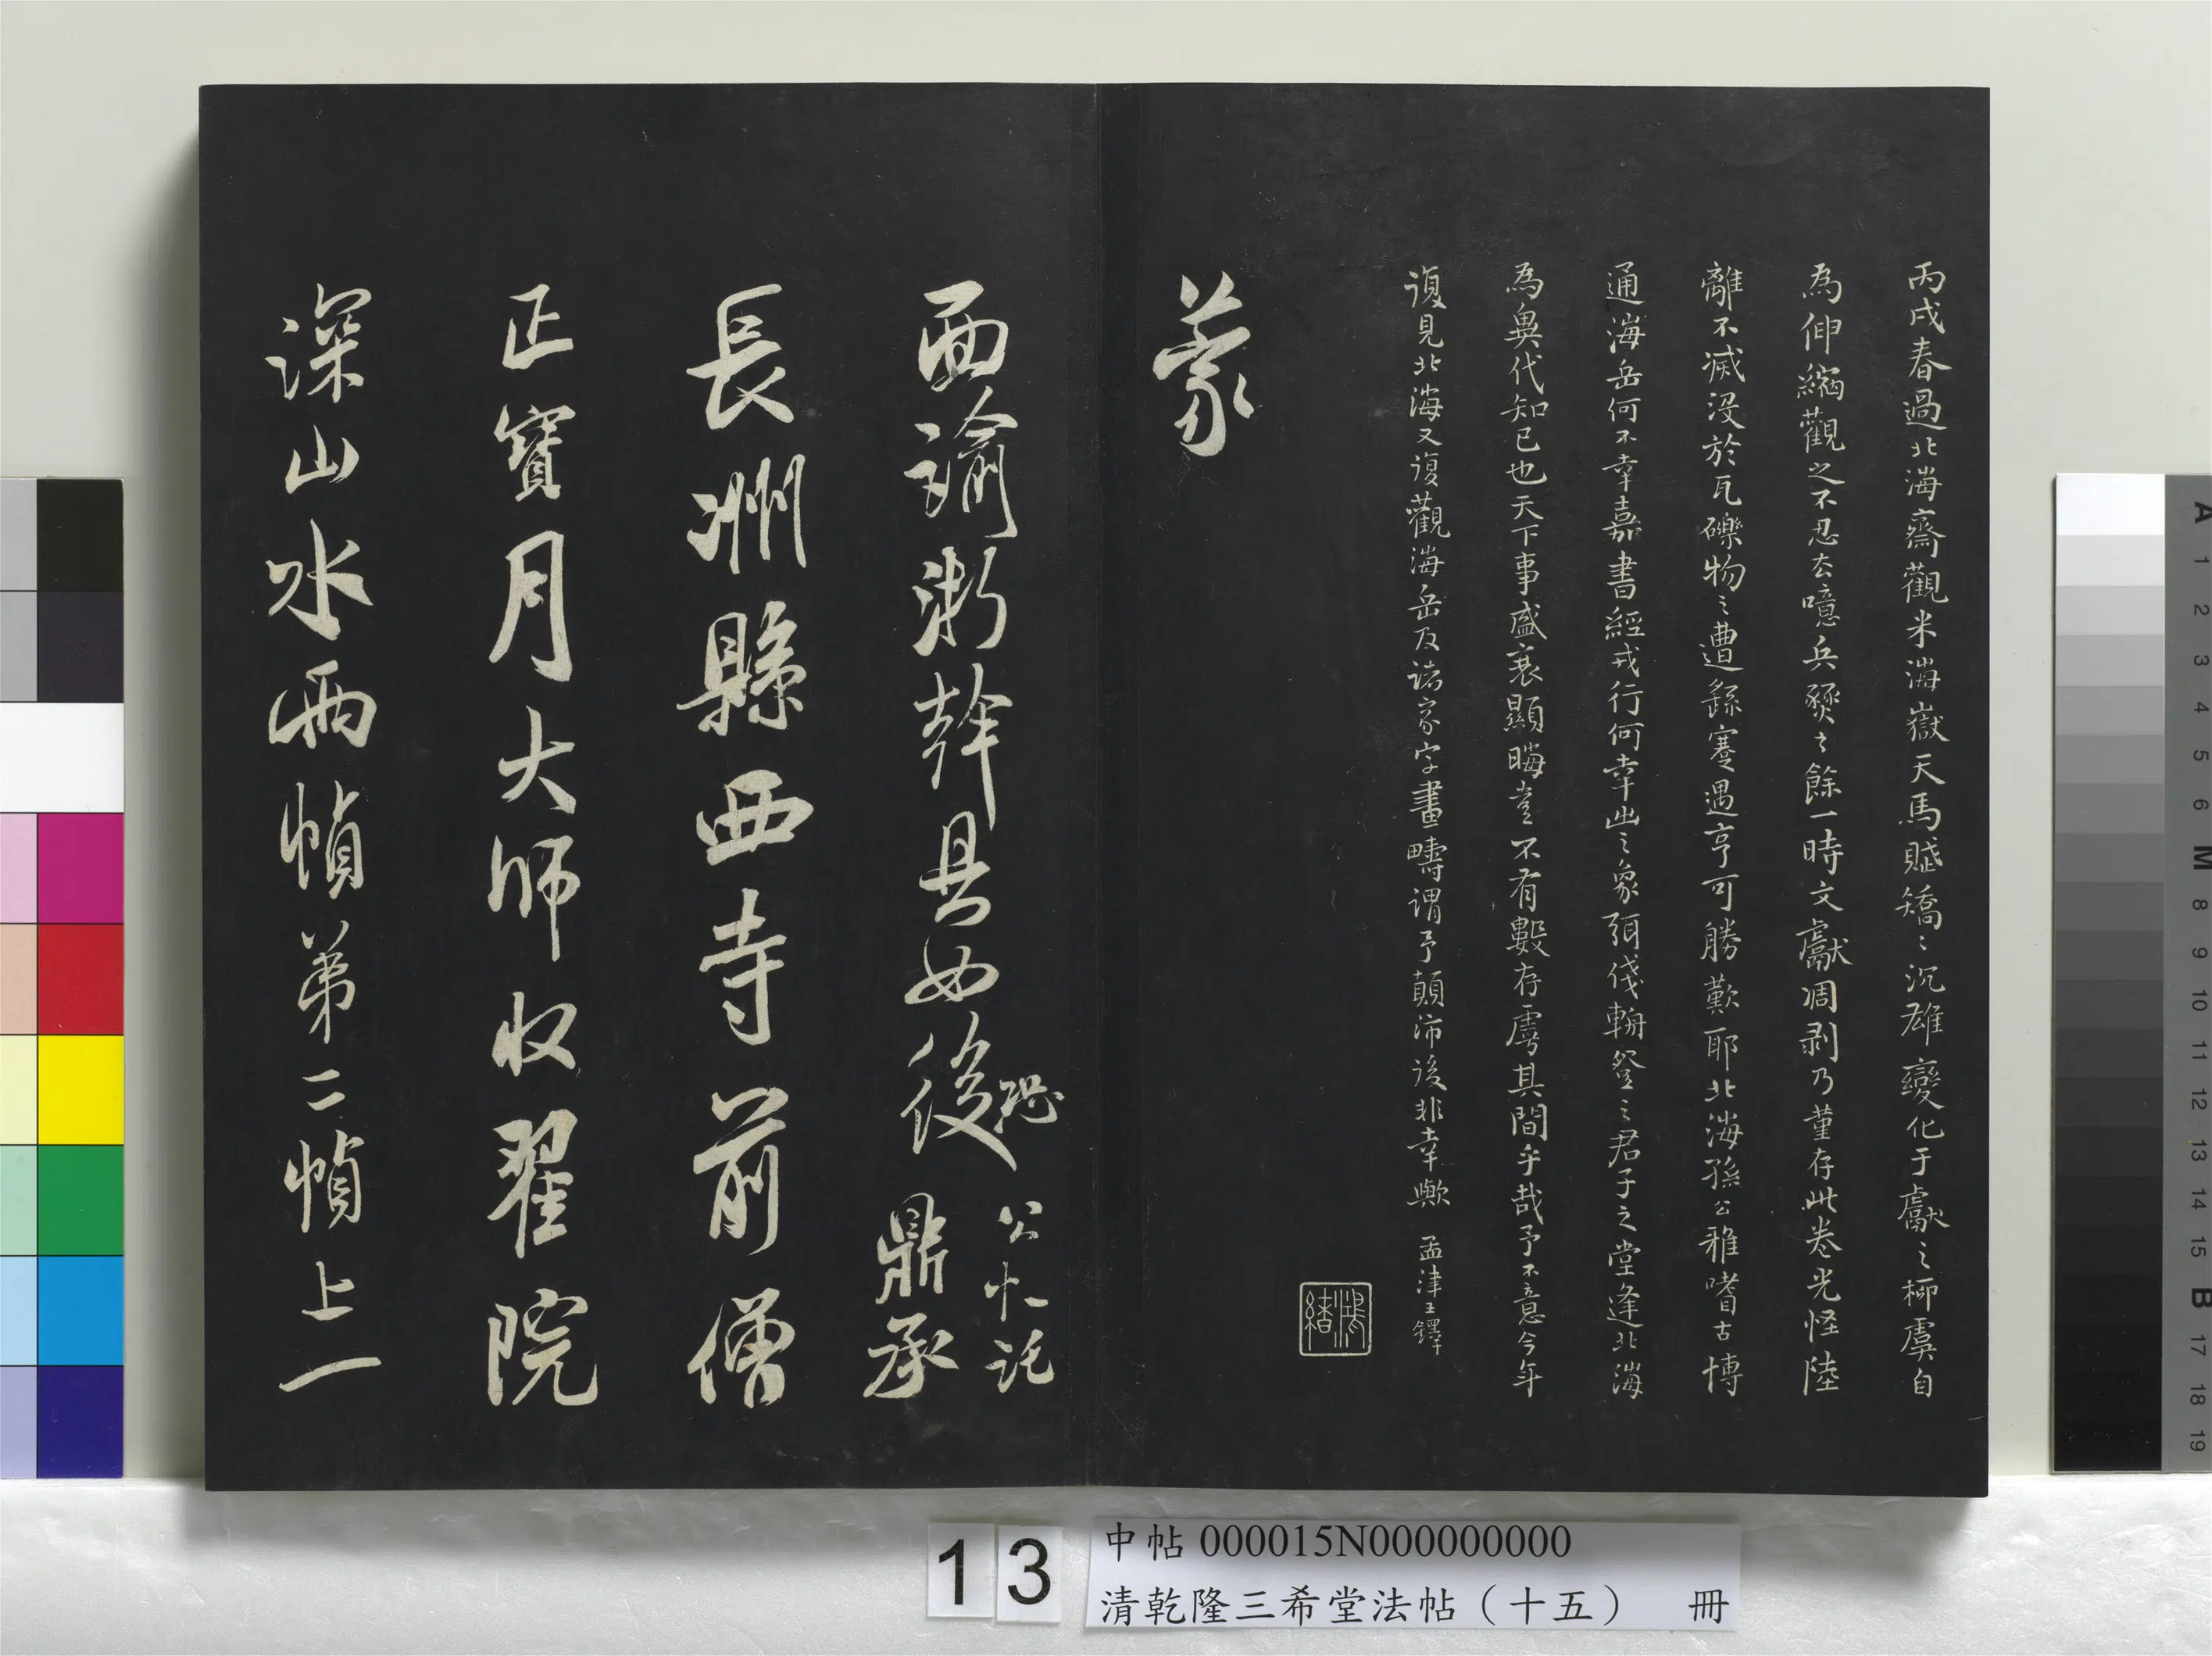 丙戌春過北海齋觀米海嶽天馬賦矯〻沉雄變化于獻之柳虞自
為伸縮觀之不忍去噫兵燹之餘一時文獻凋剥乃堇存此卷光怪陸
離不滅沒於瓦礫物之遭繇蹇遇亨可勝歎耶北海孫公雅嗜古博
通海岳何不幸嘉書經戎行何幸出之象弭伐輈登之君子之堂逢北海
為異代知已也天下事盛衰顯晦豈不有數存虖其間乎哉予不意今年
復見北海又復觀海岳及諸家字畫疇謂予顛沛後非幸歟 孟津王鐸
蒙
面諭浙幹具如後
恐公忙託
鼎承
長洲縣西寺前僧
正寶月大師收翟院
深山水兩幀第二幀上一
A 1 2 3 4 5 6 M 8 9 10 11 12 13 14 15 B 17 18 19
13
中帖 000015N000000000
清乾隆三希堂法帖（十五） 冊